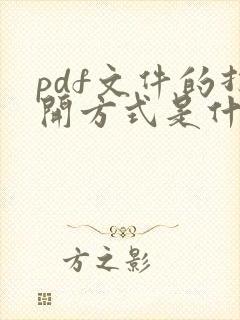 pdf文件的打
開方式是什
方之影